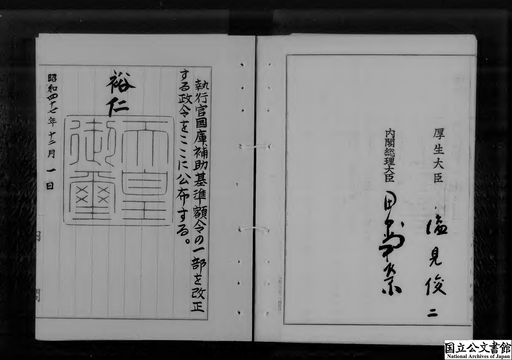 厚生大臣
塩見俊二
内閣総理大臣
田中角榮
執行官国庫補助基準額令の一部を改正
する政令をここに公布する。
裕仁
天皇
御璽
昭和四十七年十二月一日
内閣
国立公文書館
National Archives of Japan